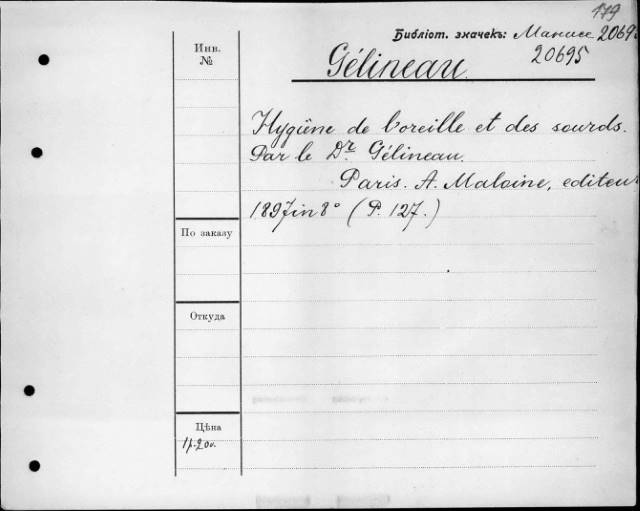 119
Библіот. значекъ: 2069
20695
Инв.
№
Gélineau.
Hygiène de l'oreille et des sourds.
Par le Dr. Gélineau.
Paris. A. Maloine, editeur
1897 in 8° (P. 127.)
По заказу
Откуда
Цѣна